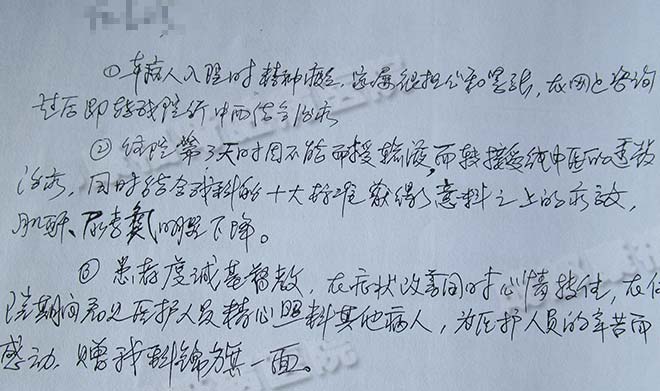 ①本病人入院时精神疲乏，家属很担心和紧张，在网上咨询
过后即转我院行中西结合治疗
②住院第3天时因不能耐受输液，而转接受纯中医的透散
治疗，同时结合我科的十大标准获得了意料之上的疗效，
肌酐、尿素氮明显下降。
③患者虔诚基督教，在症状改善同时心情较佳，在住
院期间看见医护人员精心照料其他病人，为医护人员的辛苦而
感动，赠我科锦旗一面。